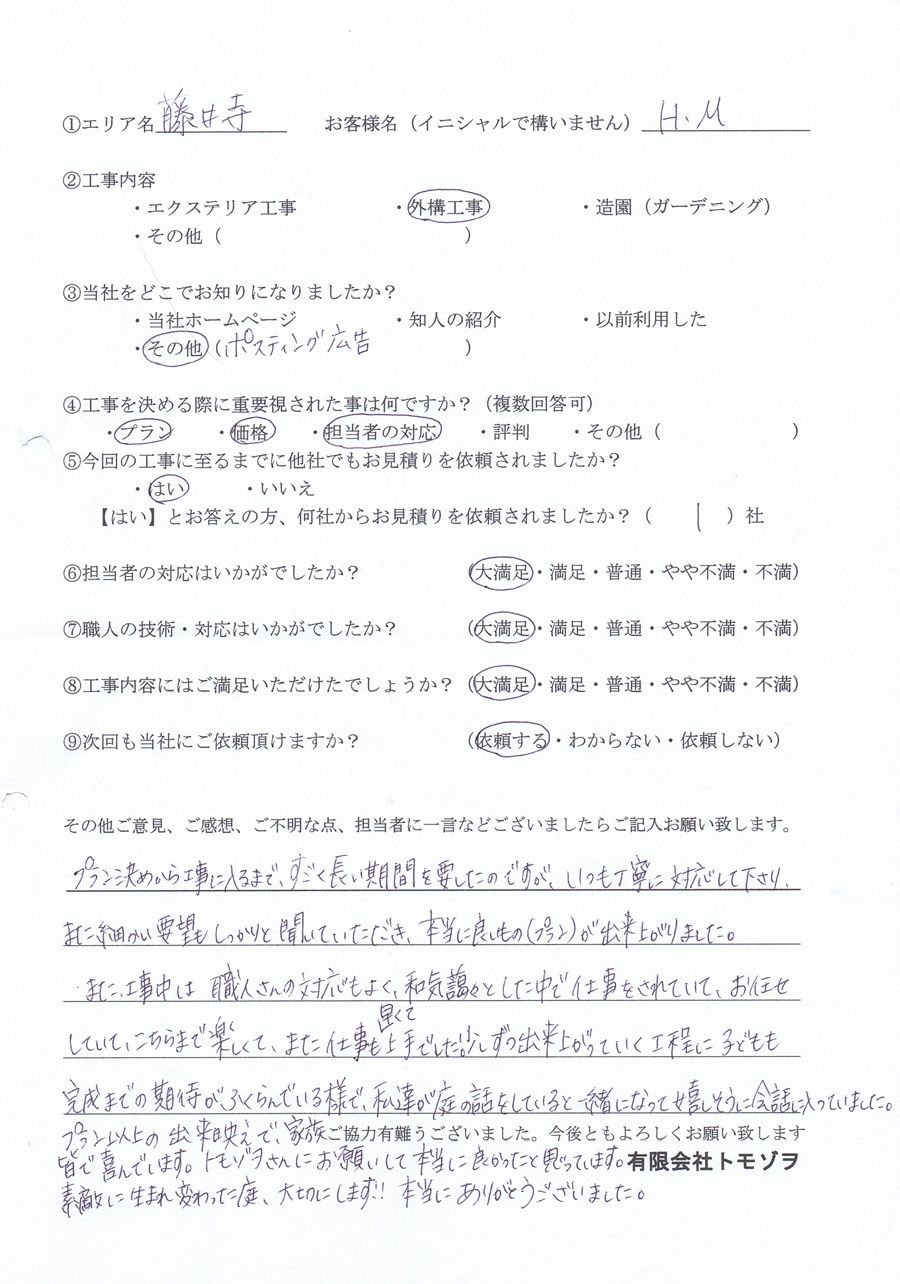 ①エリア名 藤井寺 お客様名（イニシャルで構いません） H.M
②工事内容
・エクステリア工事 ・外構工事 ・造園（ガーデニング）
・その他（ ）
③当社をどこでお知りになりましたか？
・当社ホームページ ・知人の紹介 ・以前利用した
・その他（ポスティング広告 ）
④工事を決める際に重要視された事は何ですか？（複数回答可）
・プラン ・価格 ・担当者の対応 ・評判 ・その他（ ）
⑤今回の工事に至るまでに他社でもお見積りを依頼されましたか？
・はい ・いいえ
【はい】とお答えの方、何社からお見積りを依頼されましたか？（ 1 ）社
⑥担当者の対応はいかがでしたか？ （大満足・満足・普通・やや不満・不満）
⑦職人の技術・対応はいかがでしたか？ （大満足・満足・普通・やや不満・不満）
⑧工事内容にはご満足いただけたでしょうか？（大満足・満足・普通・やや不満・不満）
⑨次回も当社にご依頼頂けますか？ （依頼する・わからない・依頼しない）
その他ご意見、ご感想、ご不明な点、担当者に一言などございましたらご記入お願い致します。
プラン決めから工事に入るまで、すごく長い期間を要したのですが、いつも丁寧に対応して下さり、
また細かい要望もしっかりと聞いていただき、本当に良いもの（プラン）が出来上がりました。
また、工事中は 職人さんの対応もよく、和気藹々とした中で仕事をされていて、お任せ
していて、こちらまで楽しくて、また仕事も早くて上手でした。少しずつ出来上がっていく工程に子どもも
完成までの期待がふくらんでいる様で、私達が庭の話をしていると一緒になって嬉しそうに会話に入っていました。
プラン以上の出来映えで、家族
ご協力有難うございました。今後ともよろしくお願い致します
皆で喜んでいます。トモゾヲさんにお願いして本当に良かったと思っています。
有限会社トモゾヲ
素敵に生まれ変わった庭、大切にします!! 本当にありがとうございました。